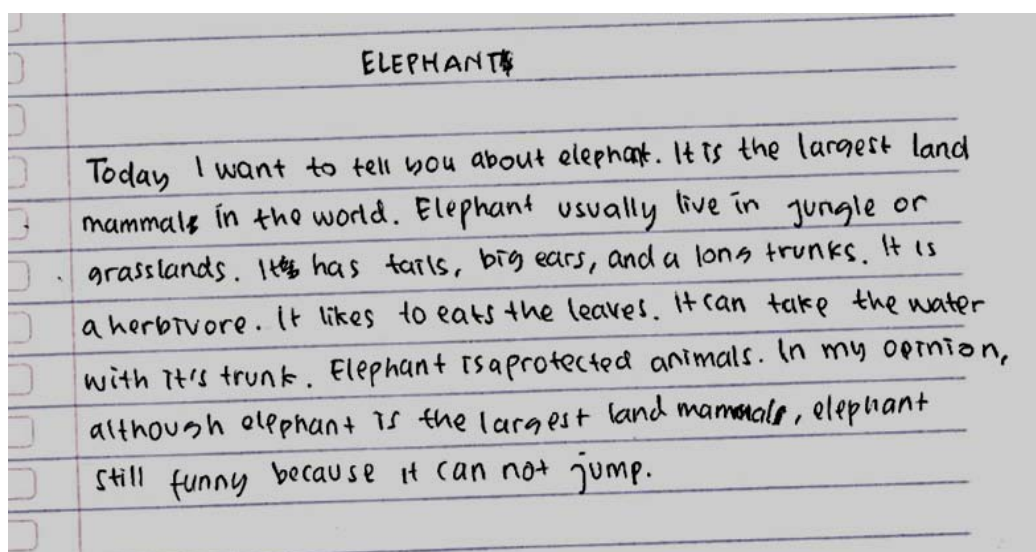 ELEPHANT
Today I want to tell you about elephant. It is the largest land
mammals in the world. Elephant usually live in jungle or
grasslands. It has tails, big ears, and a long trunks. It is
a herbivore. It likes to eats the leaves. It can take the water
with it's trunk. Elephant is a protected animals. In my opinion,
although elephant is the largest land mammals, elephant
still funny because it can not jump.